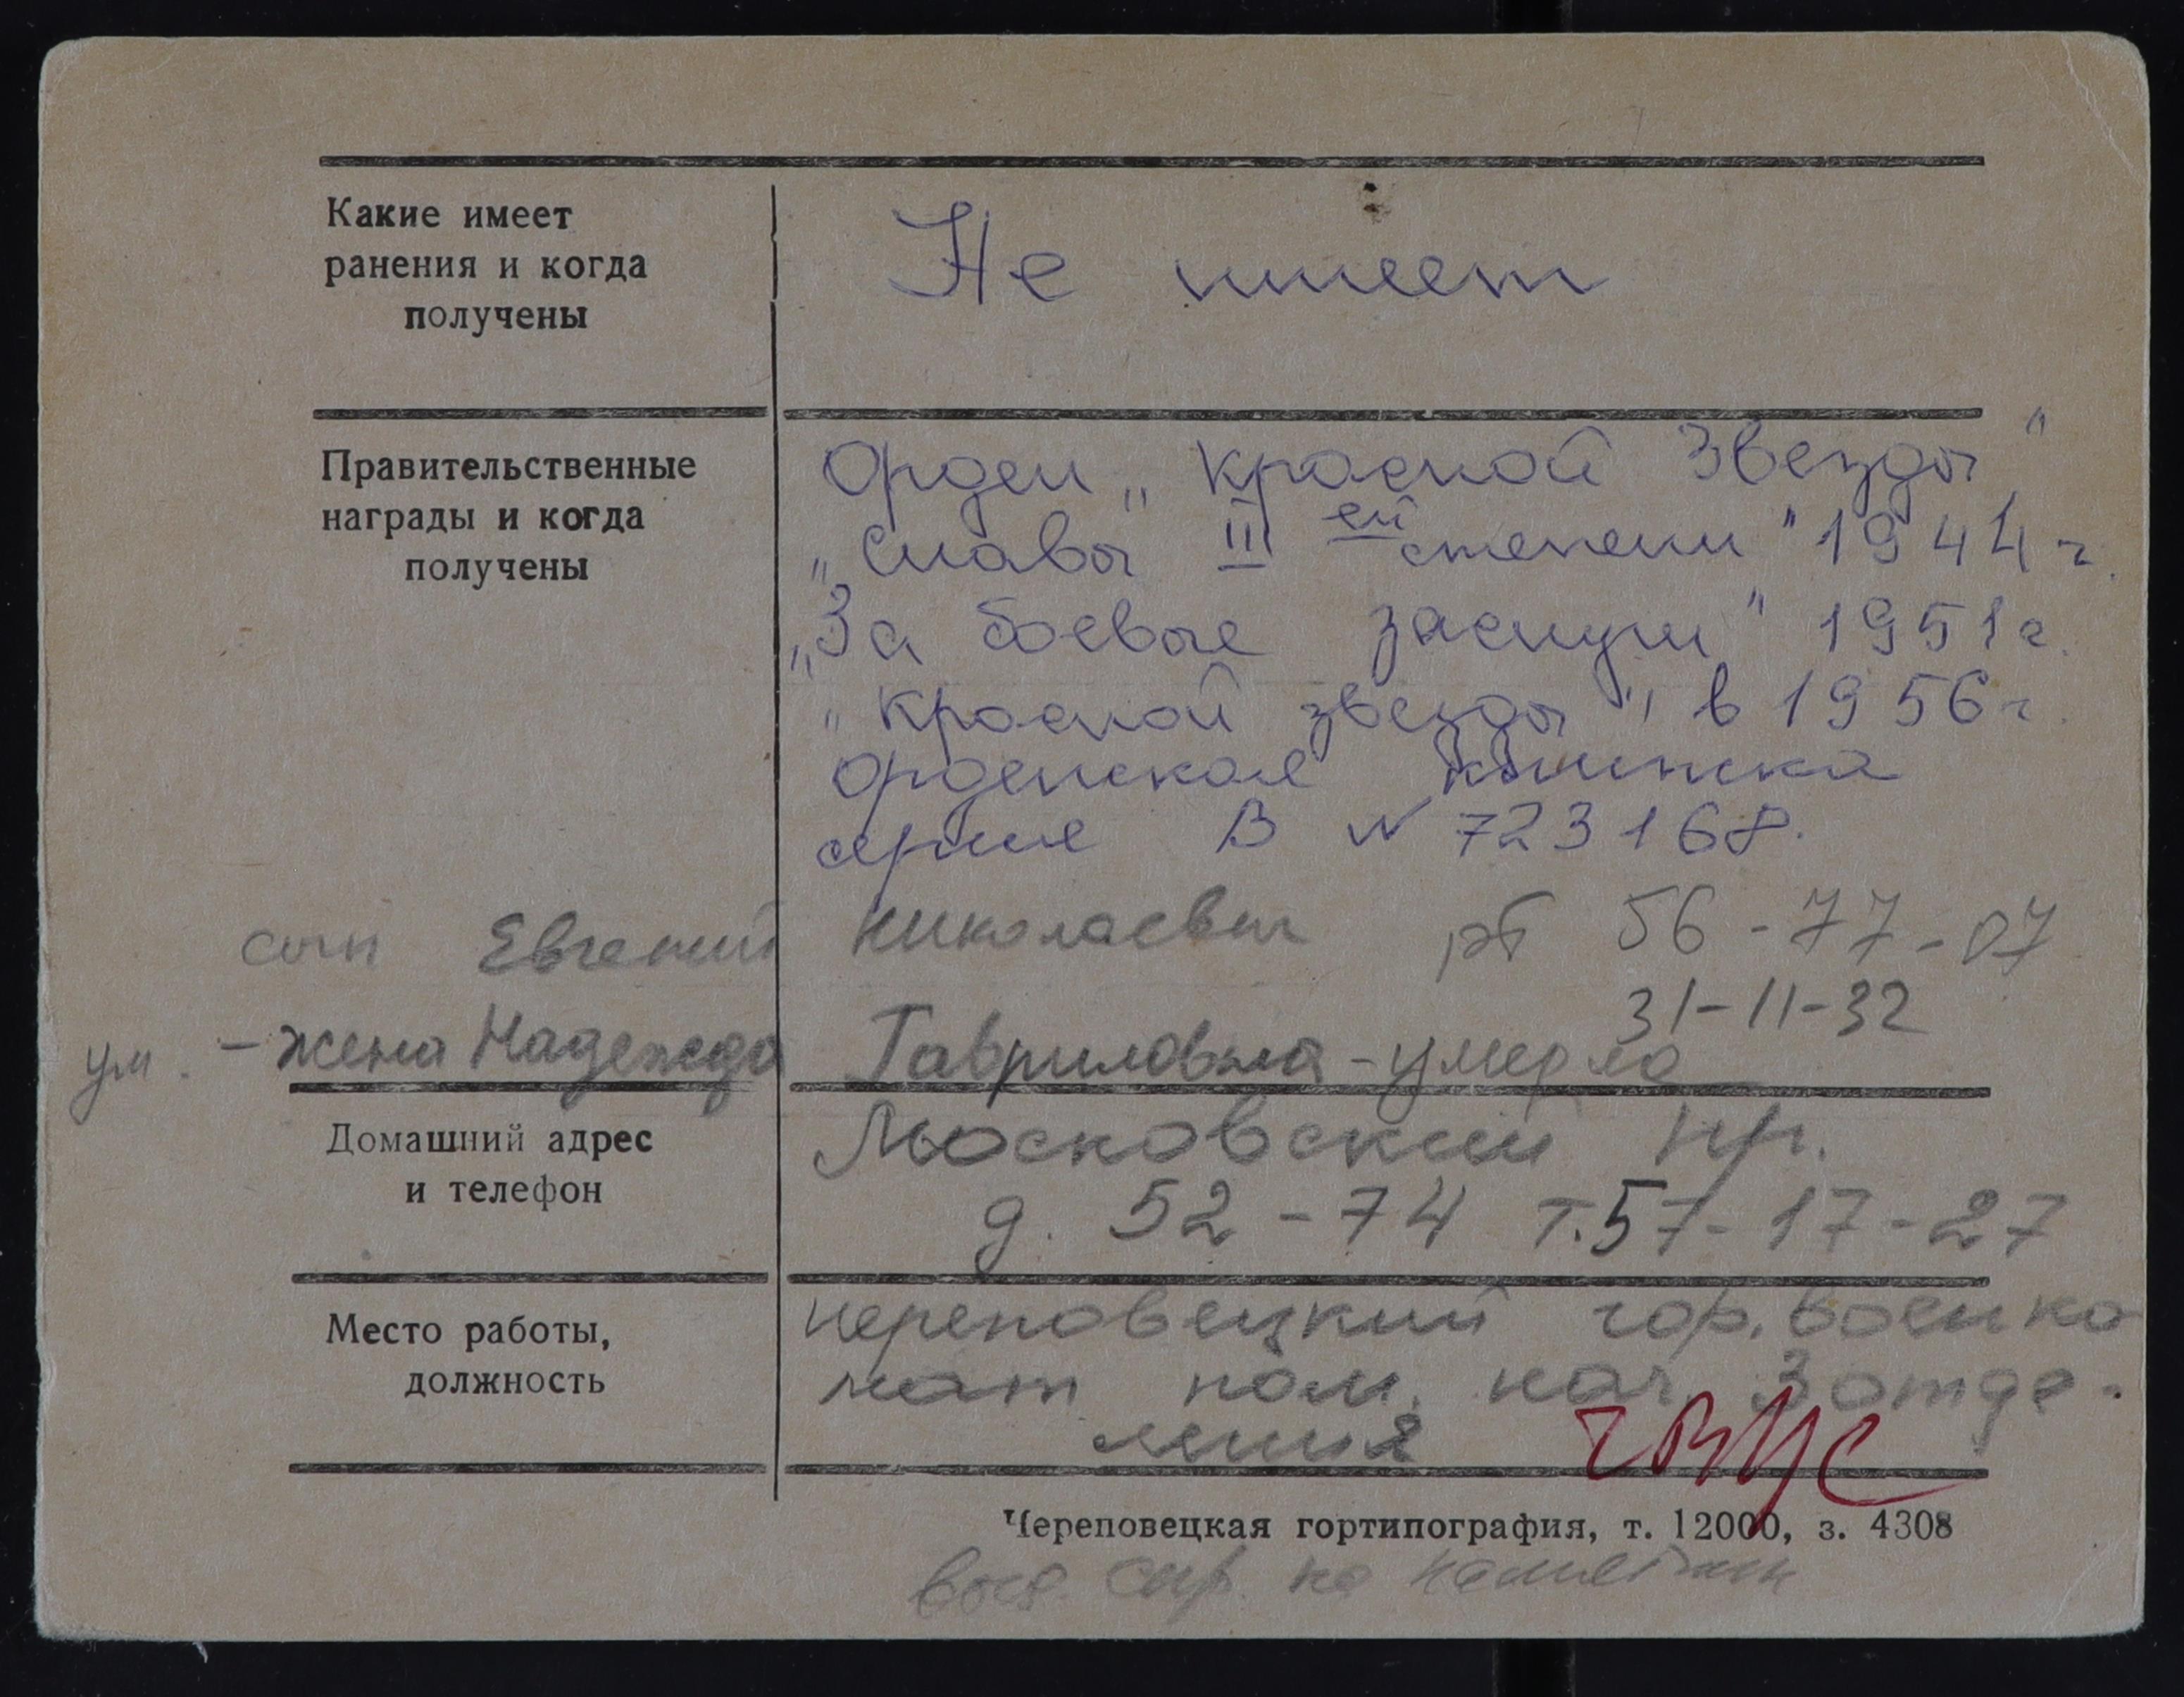 Какие имеет
ранения и когда
получены
Не имеет
Правительственные
награды и когда
получены
Орден „Красной Звезды"
„Славы III ей степени" 1944 г.
„За боевые заслуги" 1951 г.
"Красной звезды", в 1956 г.
Орденская книжка
серия В № 723168.
сын Евгений Николаевич рт 56-77-07
31-11-32
ум. - жена Надежда Гавриловна - умерла
Домашний адрес
и телефон
Московский пр.
д. 52-74 т. 57-17-27
Место работы,
должность
Череповецкий гор. военко
мат пом. нач. 3 отде-
ления ГВУС
Череповецкая гортипография, т. 12000, з. 4308
выд. спр. на памятник